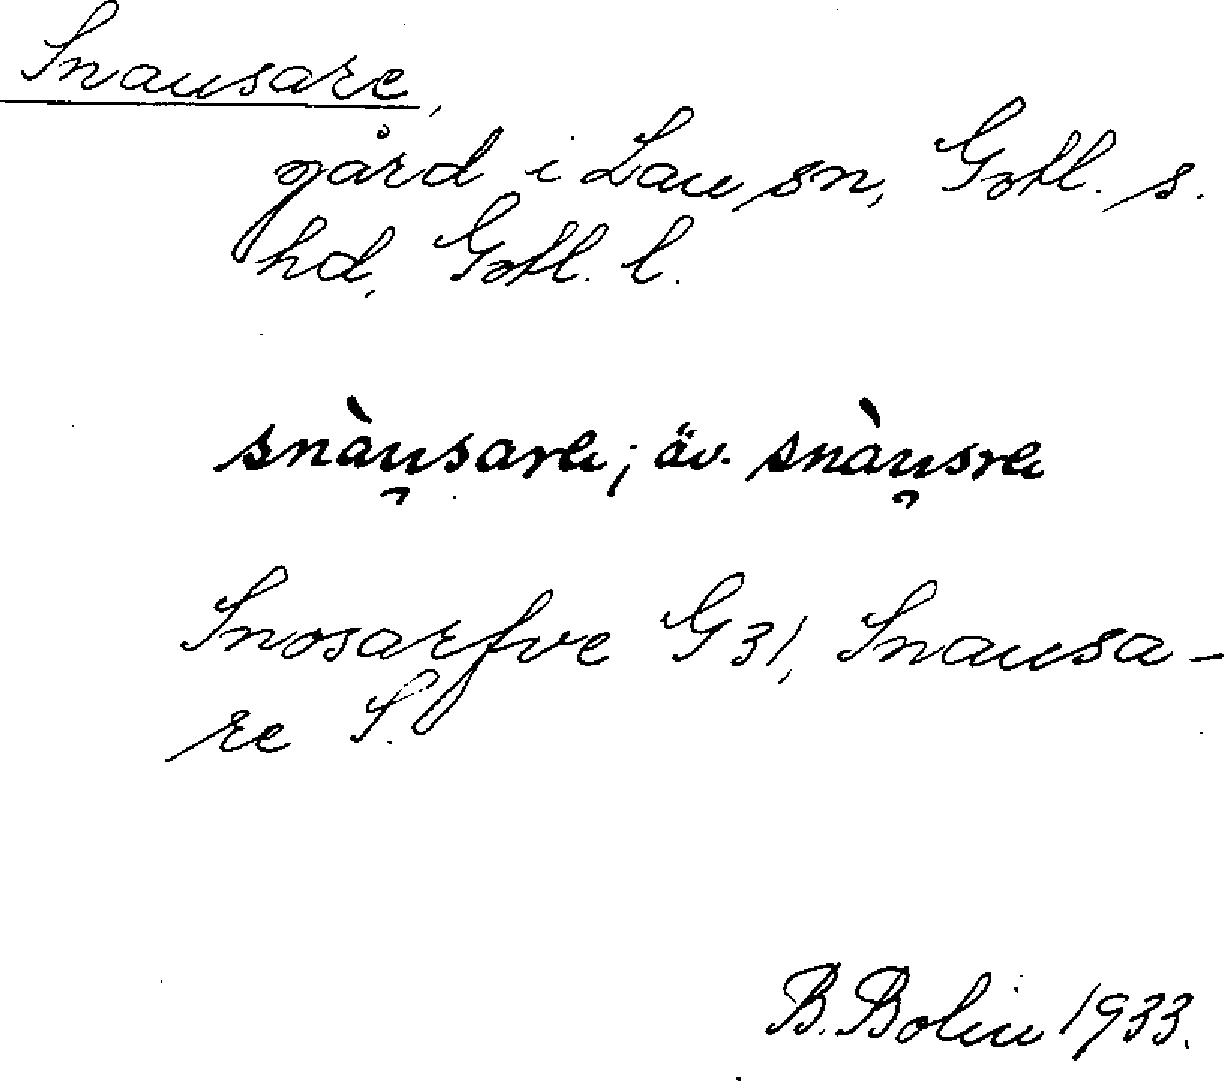 Snausare,
gård i Lau sn, Gotl. s.
hd, Gotl. l.
snàu̯sarɐ; äv. snàu̯srɐ
Snosarfve G 31, Snausa-
re S.
B. Bolin 1933.